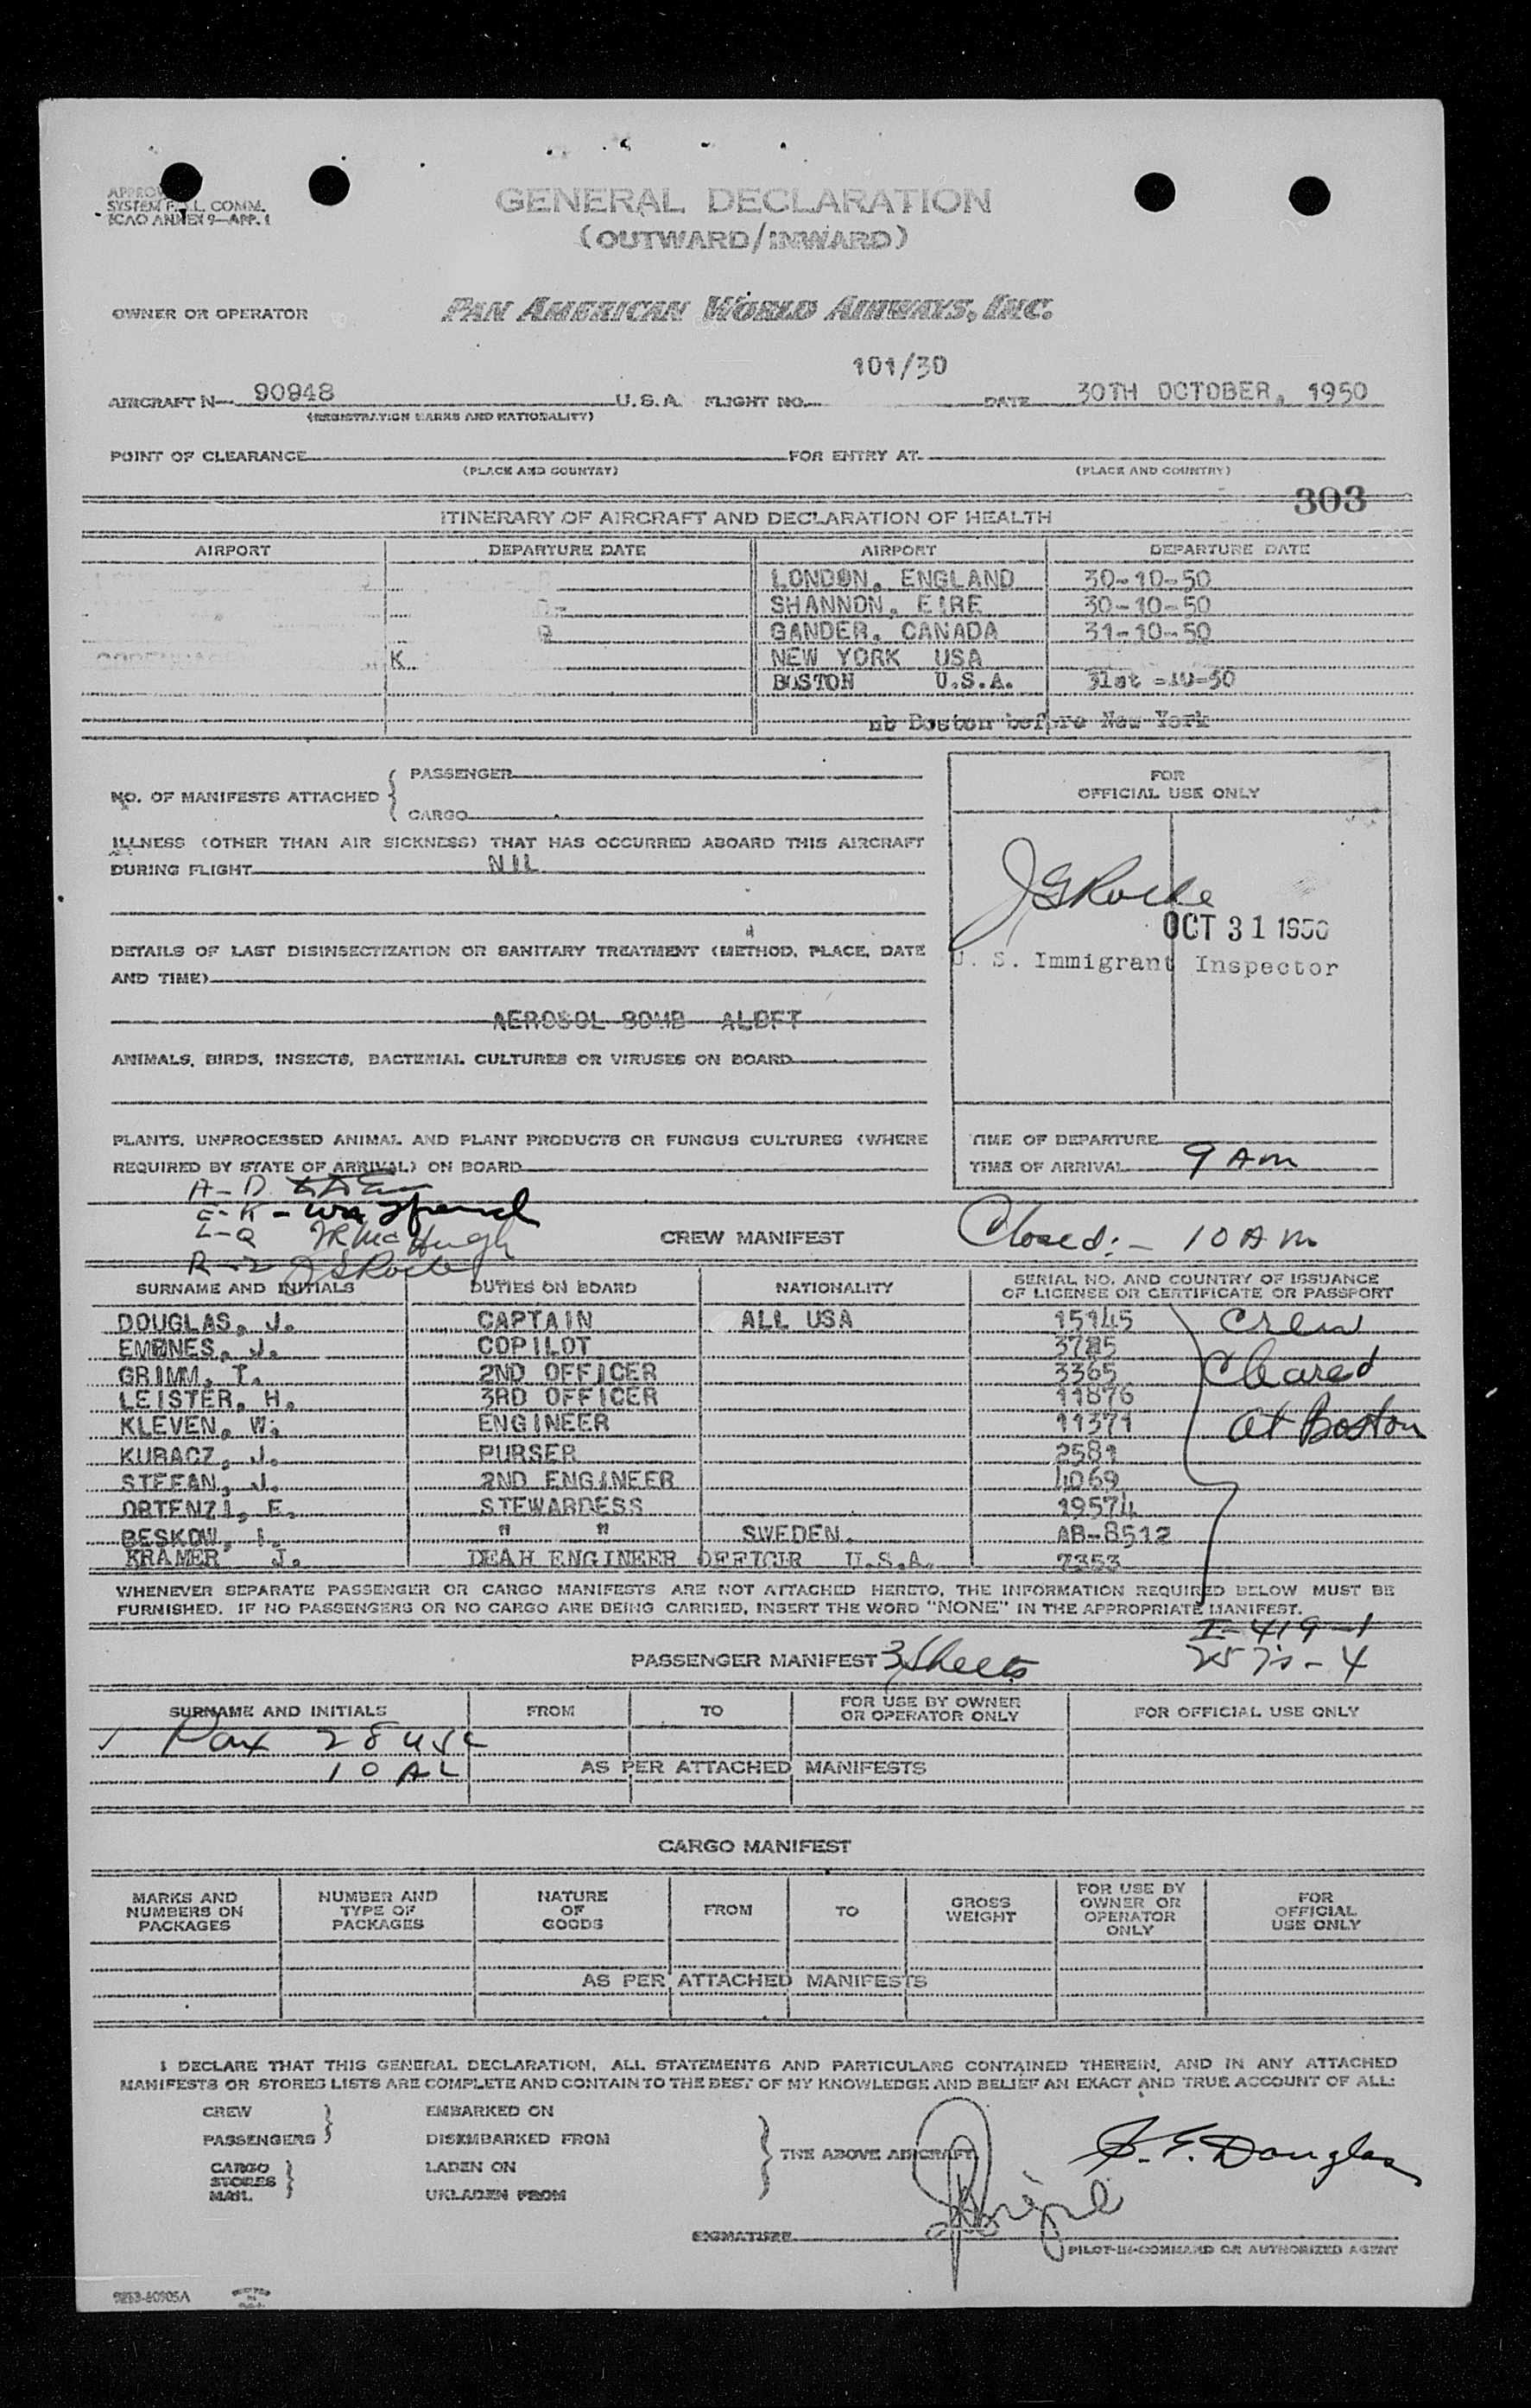 SYSTEM F.A.L. COMM.
ICAO ANNEX 9—APP. 1
GENERAL DECLARATION
(OUTWARD/INWARD)
OWNER OR OPERATOR PAN AMERICAN WORLD AIRWAYS, INC.
101/30
AIRCRAFT N— 90948 U.S.A. FLIGHT NO. DATE 30TH OCTOBER, 1950
(REGISTRATION MARKS AND NATIONALITY)
POINT OF CLEARANCE FOR ENTRY AT
(PLACE AND COUNTRY) (PLACE AND COUNTRY)
303
ITINERARY OF AIRCRAFT AND DECLARATION OF HEALTH
AIRPORT DEPARTURE DATE AIRPORT DEPARTURE DATE
LONDON, ENGLAND 30-10-50
SHANNON, EIRE 30-10-50
GANDER, CANADA 31-10-50
K NEW YORK USA
BOSTON U.S.A. 31st -10-50
nb Boston before New York
NO. OF MANIFESTS ATTACHED { PASSENGER
CARGO
FOR
OFFICIAL USE ONLY
ILLNESS (OTHER THAN AIR SICKNESS) THAT HAS OCCURRED ABOARD THIS AIRCRAFT
DURING FLIGHT NIL
JGRoche
OCT 31 1950
U. S. Immigrant Inspector
DETAILS OF LAST DISINSECTIZATION OR SANITARY TREATMENT (METHOD, PLACE, DATE
AND TIME)
AEROSOL BOMB ALOFT
ANIMALS, BIRDS, INSECTS, BACTERIAL CULTURES OR VIRUSES ON BOARD
PLANTS, UNPROCESSED ANIMAL AND PLANT PRODUCTS OR FUNGUS CULTURES (WHERE
REQUIRED BY STATE OF ARRIVAL) ON BOARD
TIME OF DEPARTURE
TIME OF ARRIVAL 9 AM
A-D
E-K -
L-Q McHugh
R-Z JGRoche
CREW MANIFEST
Closed:- 10 AM
SURNAME AND INITIALS DUTIES ON BOARD NATIONALITY SERIAL NO. AND COUNTRY OF ISSUANCE
OF LICENSE OR CERTIFICATE OR PASSPORT
DOUGLAS, J. CAPTAIN ALL USA 15145 Crew
EMONES, J. COPILOT
GRIMM, T. 2ND OFFICER 3365 Cleared
LEISTER, H. 3RD OFFICER 11876
KLEVEN, W. ENGINEER 11371 at Boston
KUBACZ, J. PURSER 2581
STEFAN, J. 2ND ENGINEER 4069
ORTENZI, E. STEWARDESS 19574
BESKOW, I. " " SWEDEN. AB-8512
KRAMER J. DEAH ENGINEER OFFICIR U.S.A. 7353
WHENEVER SEPARATE PASSENGER OR CARGO MANIFESTS ARE NOT ATTACHED HERETO, THE INFORMATION REQUIRED BELOW MUST BE
FURNISHED. IF NO PASSENGERS OR NO CARGO ARE BEING CARRIED, INSERT THE WORD "NONE" IN THE APPROPRIATE MANIFEST.
I-419-1
PASSENGER MANIFEST 3 Sheets
SURNAME AND INITIALS FROM TO FOR USE BY OWNER
OR OPERATOR ONLY FOR OFFICIAL USE ONLY
Pax 28 USC
10 AL AS PER ATTACHED MANIFESTS
CARGO MANIFEST
MARKS AND
NUMBERS ON
PACKAGES
NUMBER AND
TYPE OF
PACKAGES
NATURE
OF
GOODS
FROM
TO
GROSS
WEIGHT
FOR USE BY
OWNER OR
OPERATOR
ONLY
FOR
OFFICIAL
USE ONLY
AS PER ATTACHED MANIFESTS
I DECLARE THAT THIS GENERAL DECLARATION, ALL STATEMENTS AND PARTICULARS CONTAINED THEREIN, AND IN ANY ATTACHED
MANIFESTS OR STORES LISTS ARE COMPLETE AND CONTAIN TO THE BEST OF MY KNOWLEDGE AND BELIEF AN EXACT AND TRUE ACCOUNT OF ALL:
CREW EMBARKED ON
PASSENGERS DISEMBARKED FROM
THE ABOVE AIRCRAFT
CARGO LADEN ON
STORES
MAIL UNLADEN FROM
Douglas
SIGNATURE
PILOT-IN-COMMAND OR AUTHORIZED AGENT